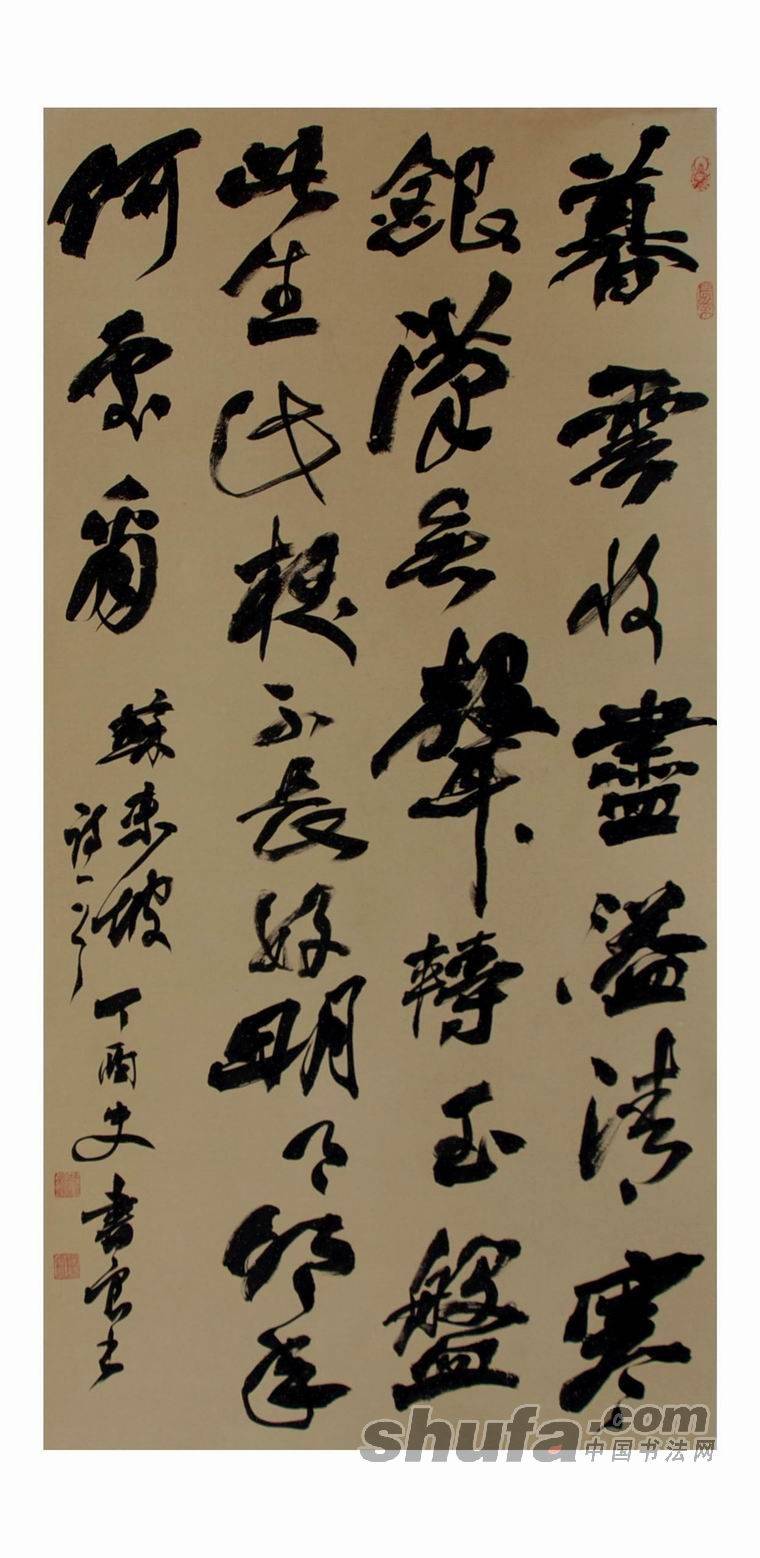 暮雲收盡溢清寒
銀漢無聲轉玉盤
此生此夜不長好明月明年
何處看
蘇東坡
詩一首
丁酉史書良
shufa.com
中国书法网